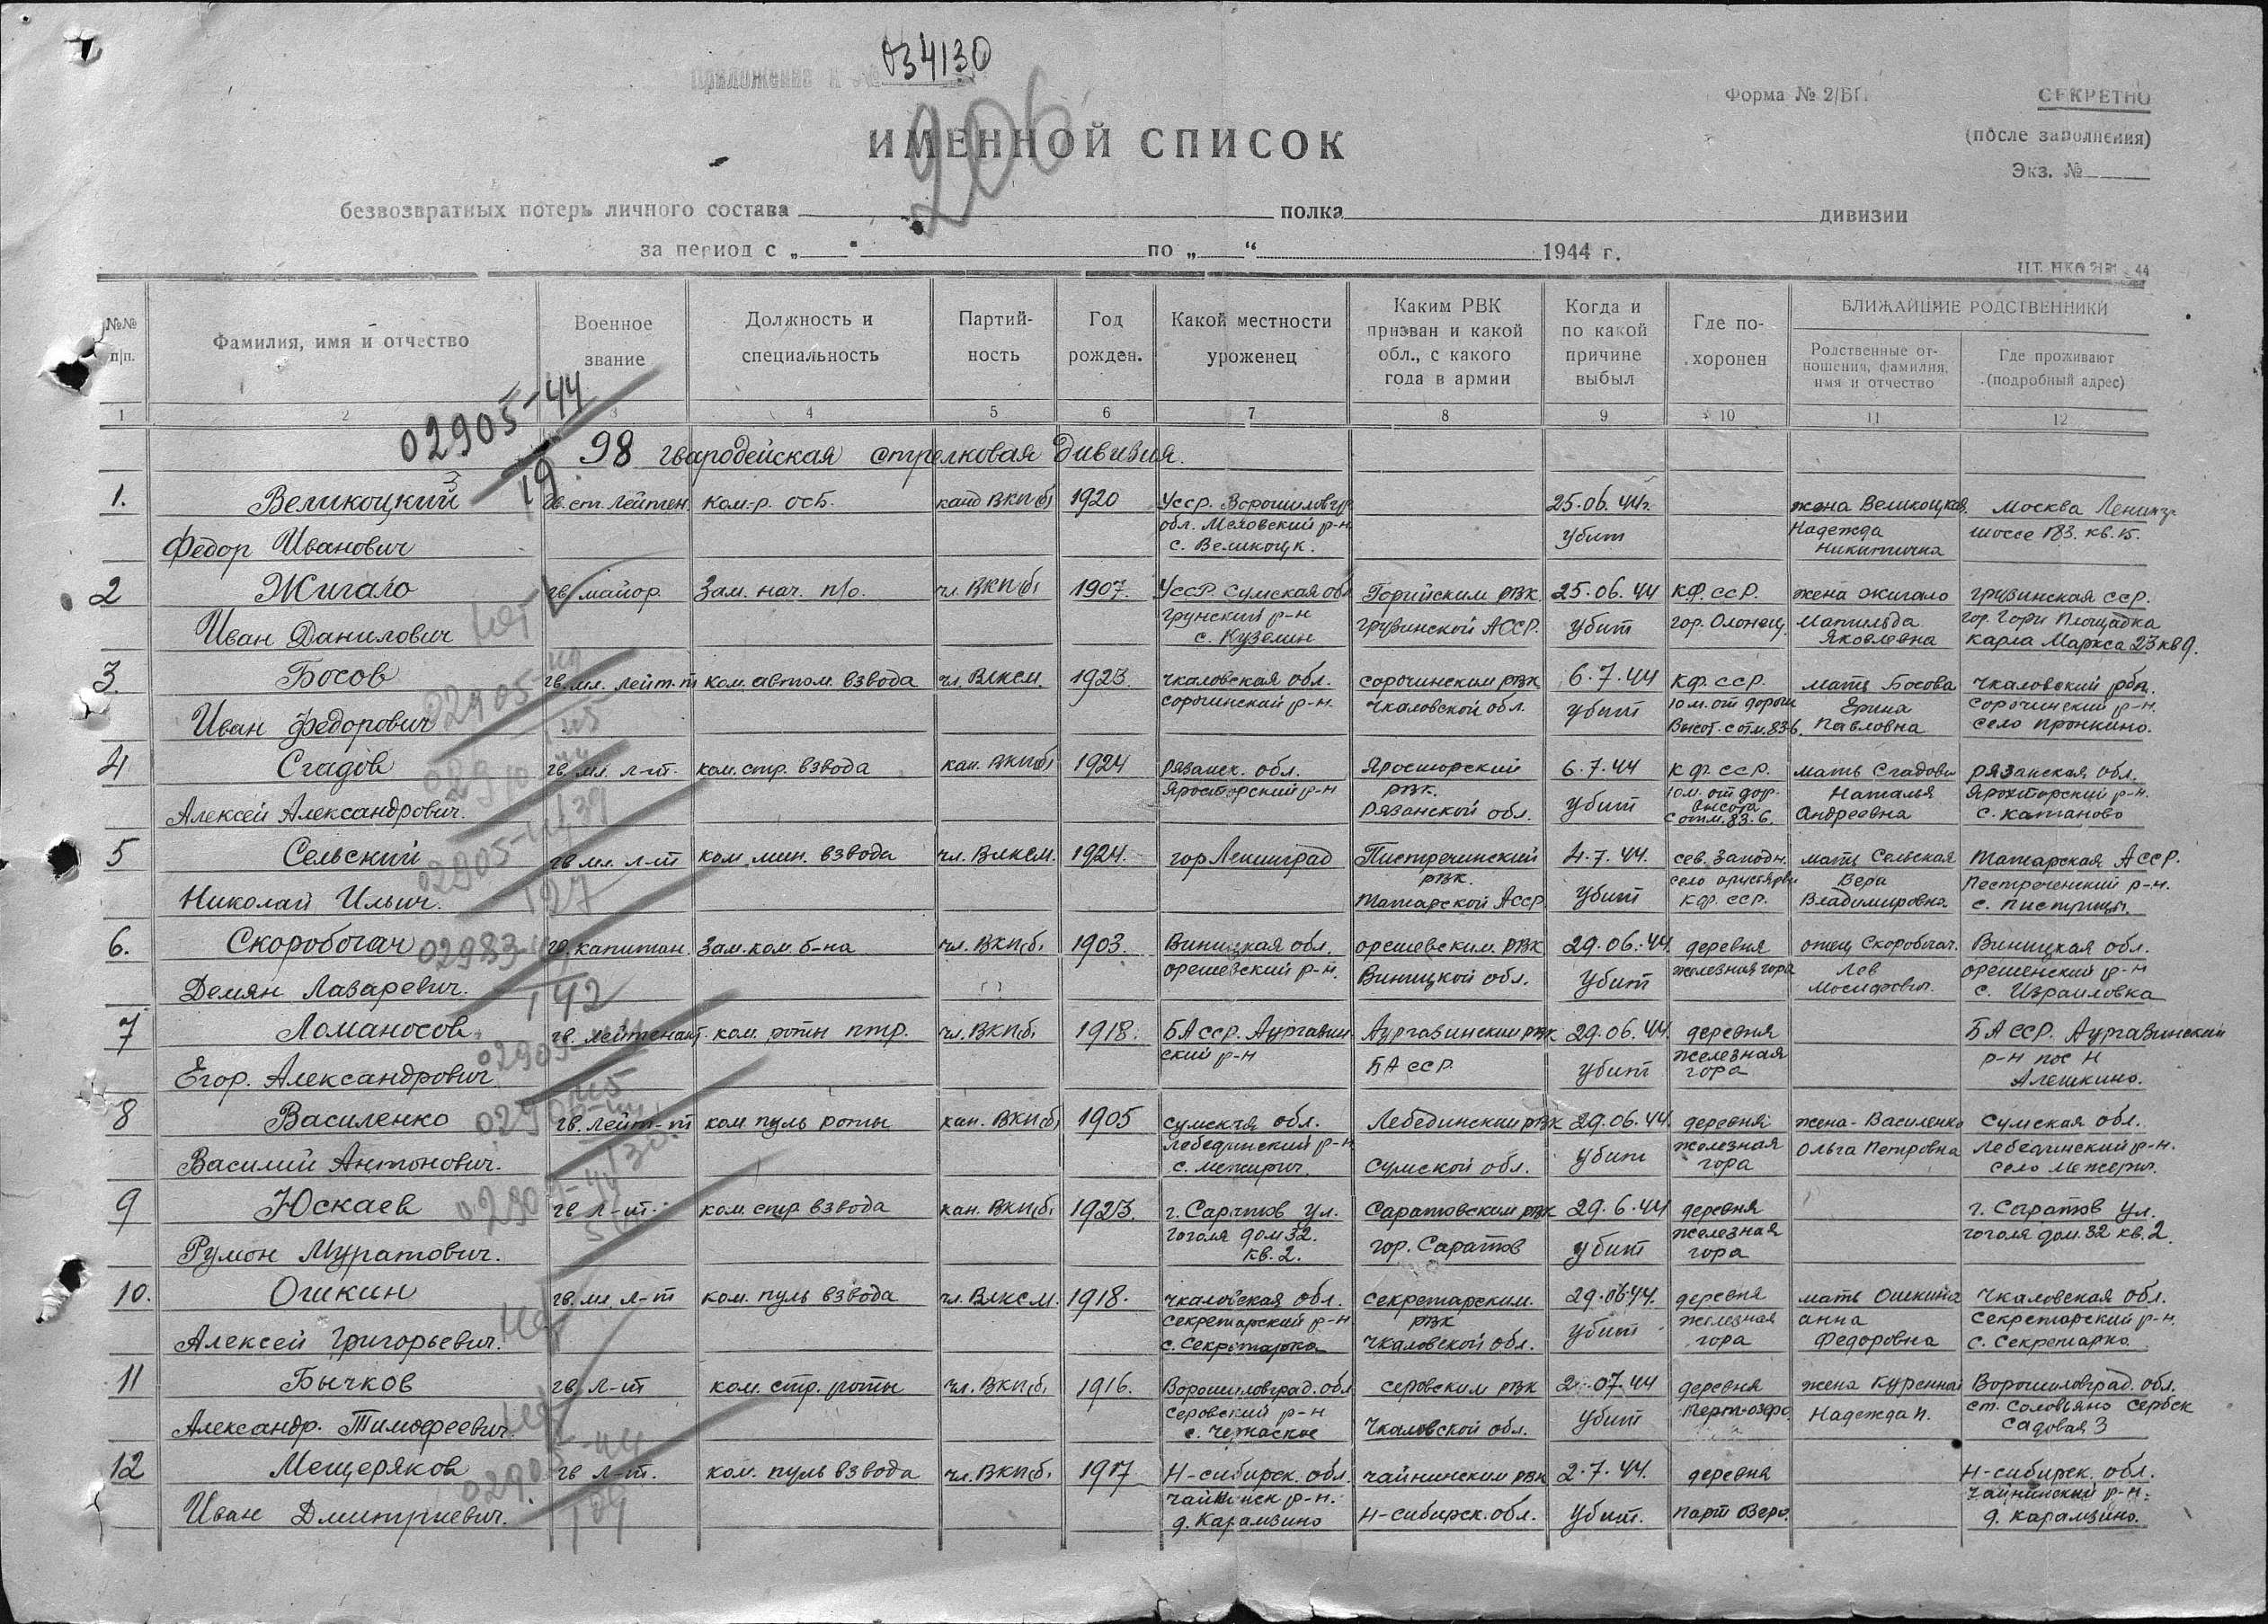 Приложение к №
034130
206
Форма № 2/БП
СЕКРЕТНО
(после заполнения)
Экз. №
ИМЕННОЙ СПИСОК
безвозвратных потерь личного состава полка дивизии
за период с „ “ по „ “ 1944 г.
№№ п/п.
Фамилия, имя и отчество
Военное звание
Должность и специальность
Партий-
ность
Год рожден.
Какой местности уроженец
Каким РВК призван и какой обл., с какого года в армии
Когда и по какой причине выбыл
Где по-
хоронен
БЛИЖАЙШИЕ РОДСТВЕННИКИ
Родственные от-
ношения, фамилия, имя и отчество
Где проживают (подробный адрес)
1 2 3 4 5 6 7 8 9 10 11 12
02905-44
19
98 гвардейская стрелковая дивизия
1. Великоцкий гв. ст. лейтен. ком-р. осб. канд ВКП(б) 1920 Усср. Ворошиловгр 25.06.44г. жена Великоцкая Москва Ленингр
обл. Меловский р-н Надежда шоссе 183. кв. 15.
Федор Иванович с. Великоцк. убит Никитична
2 Жигало гв. майор Зам. нач. п/о. чл. ВКП(б) 1907. УссР. Сумская обл Горийским рвк. 25.06.44 К.Ф. ссР. жена Жигало грузинская сср.
грунский р-н гор. Гори Площадка
Иван Данилович с. Куземин грузинской АССР. убит гор. Олонец. Матильда Яковлевна Карла Маркса 23 кв 9.
3. Босов гв. мл. лейт-т ком. автом. взвода чл. Влксм. 1923. Чкаловская обл. сорочинским рвк 6.7.44 К.Ф. сср. мать Босова Чкаловский обл.
сорочинский р-н. 10 м. от дороги Ерина сорочинский р-н.
Иван Федорович Чкаловской обл. убит Высот. с отм. 83-6. Павловна село Пронкино.
4 Сгадов гв. мл. л-т. ком. стр. взвода кан. ВКП(б) 1924 рязанск. обл. 6.7.44 К Ф. сср. мать Сгадова рязанская обл.
рвк. 10 м. от дор. Наталья
Алексей Александрович. рязанской обл. убит высота с отм. 83.6. Андреевна с. Катаново
5 Сельский гв мл. л-т ком. мин. взвода чл. Влксм. 1924. гор Ленинград Пистречинский 4.7.44. сев. западн. мать Сельская Татарская Асср.
рвк. село Вера Пестреченский р-н.
Николай Ильич. Татарской Асср убит К.Ф. сср. Владимировна с. Пистрицы.
6. Скоробогач 02983 гв. капитан. Зам. ком. б-на чл. ВКП(б) 1903. Виницкая обл. орешевским. рвк 29.06.44. деревня отец Скоробогач. Виницкая обл.
орешевский р-н. железная гора Лев орешенский р-н
Демян Лазаревич. 142 Виницкой обл. убит с. Израиловка
7 Ломаносов гв. лейтенант. ком. роты птр. чл. ВКП(б) 1918. БАсср. Аургазин Аургазинским рвк 29.06.44. деревня БАсср. Аургазинский
ский р-н железная р-н пос Н
Егор. Александрович БАссР. убит гора Алешкино.
8 Василенко гв. лейт-т ком пуль роты кан. ВКП(б) 1905 сумская обл. Лебединским рвк 29.06.44. деревня жена-Василенко Сумская обл.
лебединский р-н железная Ольга Петровна Лебединский р-н.
Василий Антонович. с. Межирич. Сумской обл. убит гора село Межерич.
9 Юскаев гв л-т. ком. стр взвода кан. ВКП(б) 1923. г. Саратов ул. Саратовским рвк 29.6.44 деревня г. Саратов ул.
гоголя дом 32. железная гоголя дом. 32 кв. 2.
Румон Муратович. кв. 2. гор. Саратов убит гора
10. Ошкин гв. мл. л-т ком. пуль взвода чл. Влксм. 1918. Чкаловская обл. секретарским. 29.06.44. деревня мать Ошкина Чкаловская обл.
секретарский р-н рвк железная анна Секретарский р-н.
Алексей Григорьевич. нет с. Секретарка Чкаловской обл. убит гора Федоровна с. Секретарка.
11 Бычков гв. л-т ком. стр. роты чл. ВКП(б) 1916. Ворошиловград. обл серовским рвк 2.07.44 деревня жена Куренная Ворошиловград. обл.
Серовский р-н озеро ст. Соловьяно Сербск
Александр. Тимофеевич. нет Чкаловской обл. убит Надежда П. Садовая 3
12 Мещеряков 02905-44 гв л-т. ком. пуль взвода чл. ВКП(б) 1917 Н-сибирск. обл. чаинским рвк 2.7.44. деревня Н-сибирск. обл.
р-н. р-н.
Иван Дмитриевич. 109 д. Карамзино Н-сибирск. обл. убит. Парт Озеро. д. Карамзино.